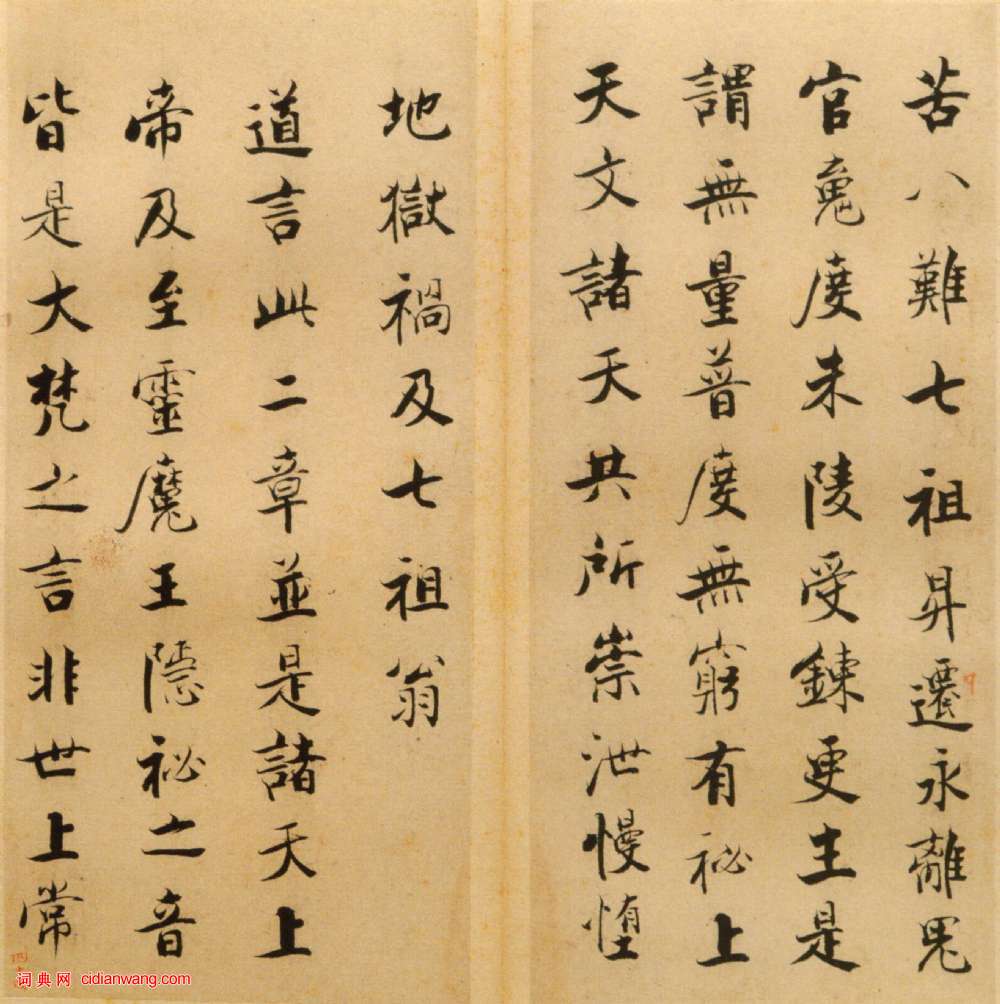 苦八難七祖昇遷永離鬼
官魂度朱陵受鍊更生是
謂無量普度無窮有祕上
天文諸天共所崇泄慢墮
地獄禍及七祖翁
道言此二章並是諸天上
帝及至靈魔王隱祕之音
皆是大梵之言非世上常
词典网 cidianwang.com